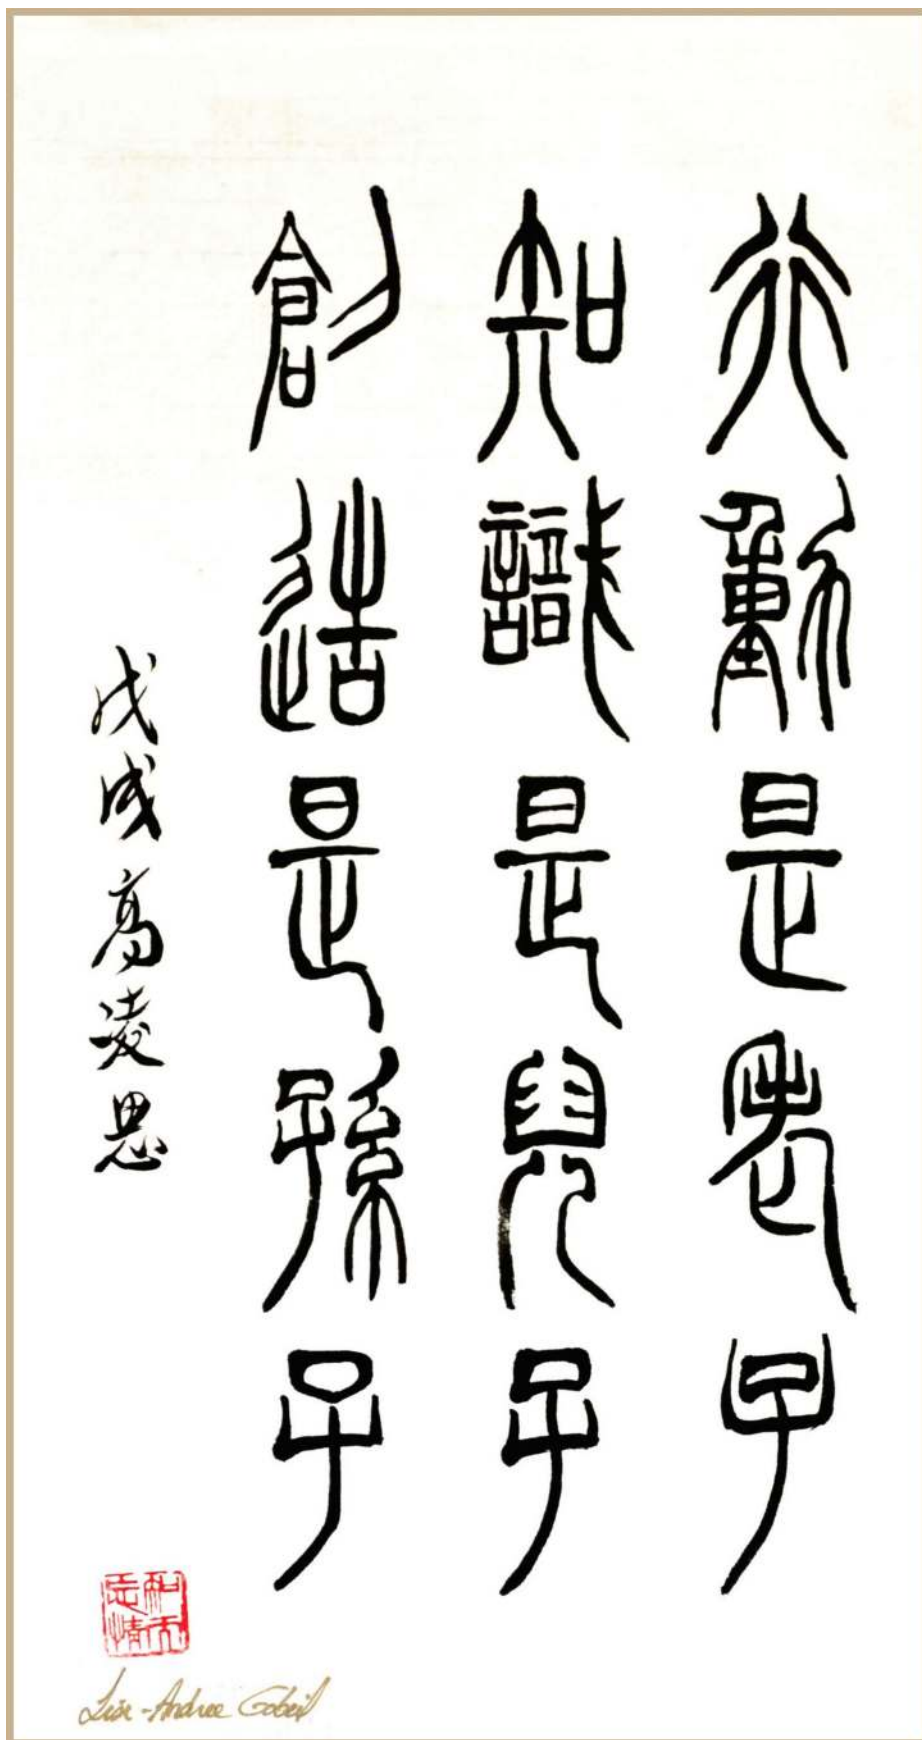 行動是老子
知識是兒子
創造是孫子
戊戌高凌思
Lise-Andree Gobeil